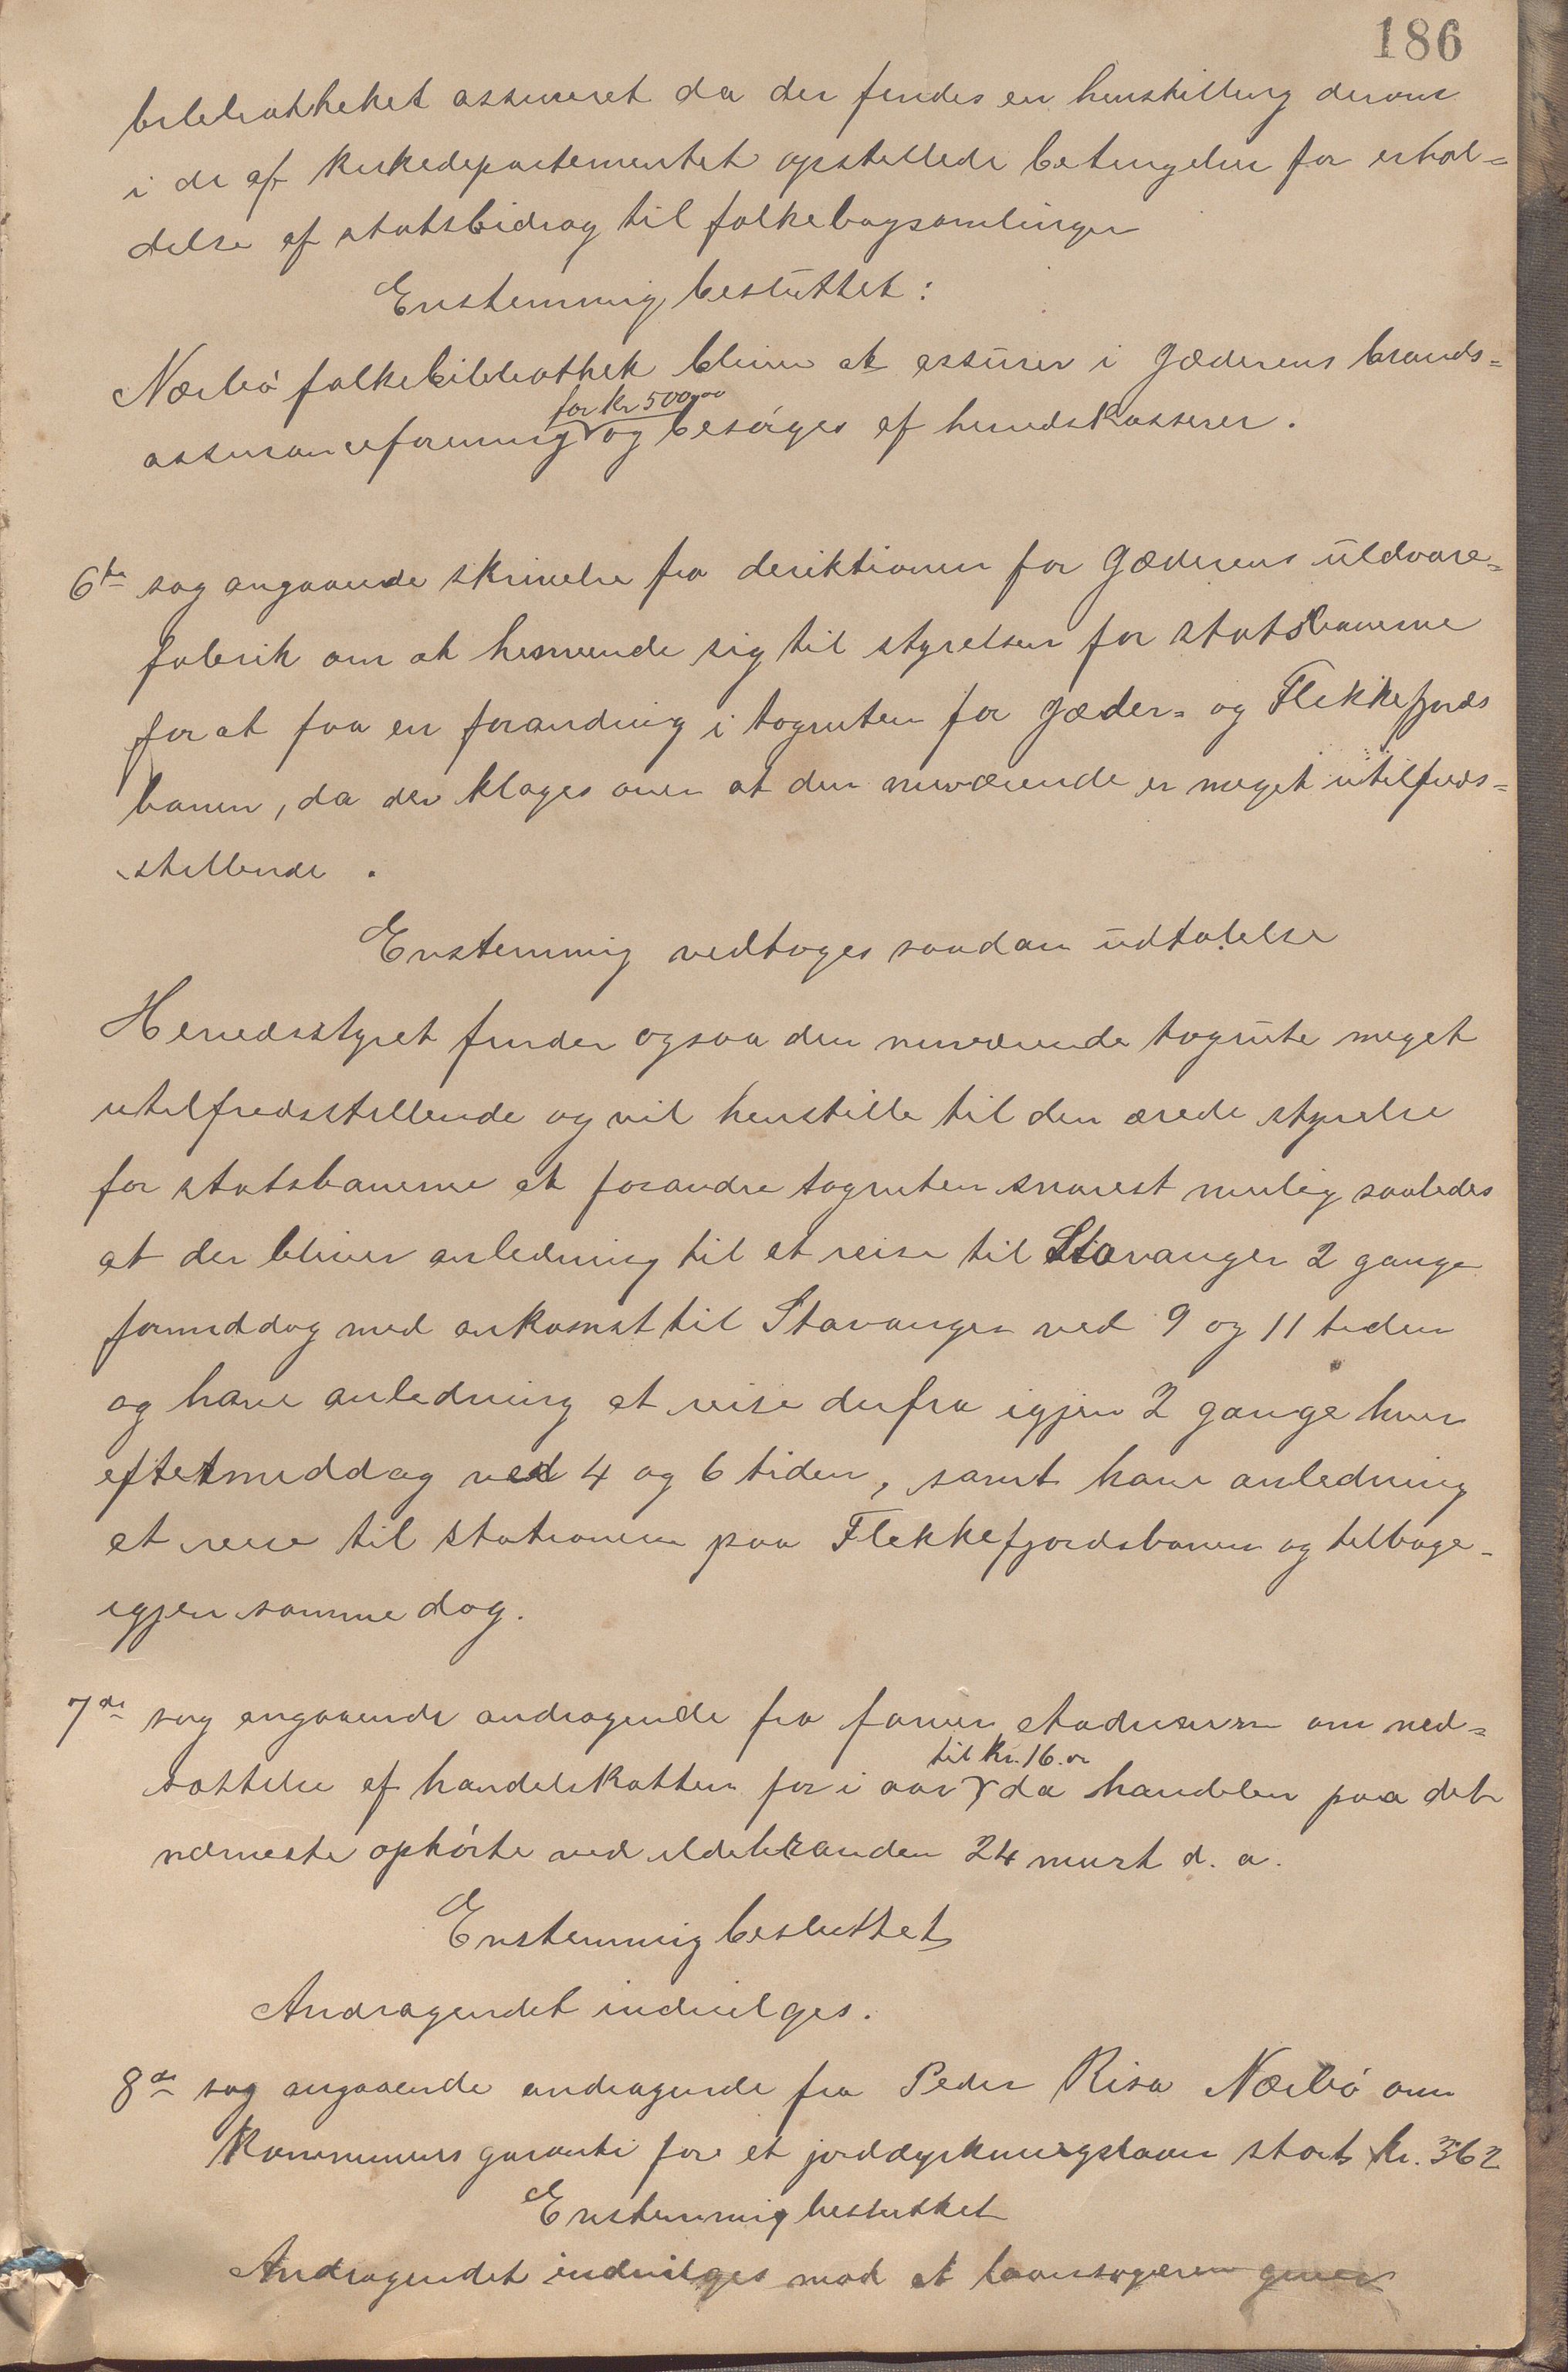 186
bibliotheket assureret da der findes en henstilling derom
i de af kirkedepartementet opstillede betingelser for erhol=
delse af statsbidrag til folkebogsamlinger
Enstemmig besluttet:
Nærbø folkebibliothek bliver at assurer i Jæderens brands=
for kr 500,00
assuranceforening og besørges af herredskasserer.
6te sag angaaende skrivelse fra deriktionen for Jæderens uldvare=
fabrik om at henvende sig til styrelsen for statsbanerne
for at faa en forandring i togruten for Jæder= og Flekkefjords
banen, da der klages over at den nuværende er meget utilfreds=
stillende.
Enstemmig vedtoges saadan udtalelse
Herredsstyret finder ogsaa den nuværende togrute meget
utilfredsstillende og vil henstille til den ærede styrelse
for statsbanerne at forandre togruten snarest mulig saaledes
at der bliver anledning til at reise til Stavanger 2 gange
formiddag med ankomst til Stavanger ved 9 og 11 tiden
og have anledning at reise derfra igjen 2 gange hver
eftetmiddag ved 4 og 6 tiden, samt have anledning
at reise til stationene paa Flekkefjordsbanen og tilbage-
igjen samme dag.
7de sag angaaende andragende fra om ned=
til kr. 16.00
sættelse af handelskatten for i aar da handelen paa det
nærmeste ophørte ved ildebranden 24 d. a.
Enstemmig besluttet
Andragendet indvilges.
8de sag angaaende andragende fra Peder Risa Nærbø om
Kommunens garanti for et jorddyrkningslaan stort kr. 362
Enstemmig besluttet
Andragendet indvilges mod at laansøgeren giver